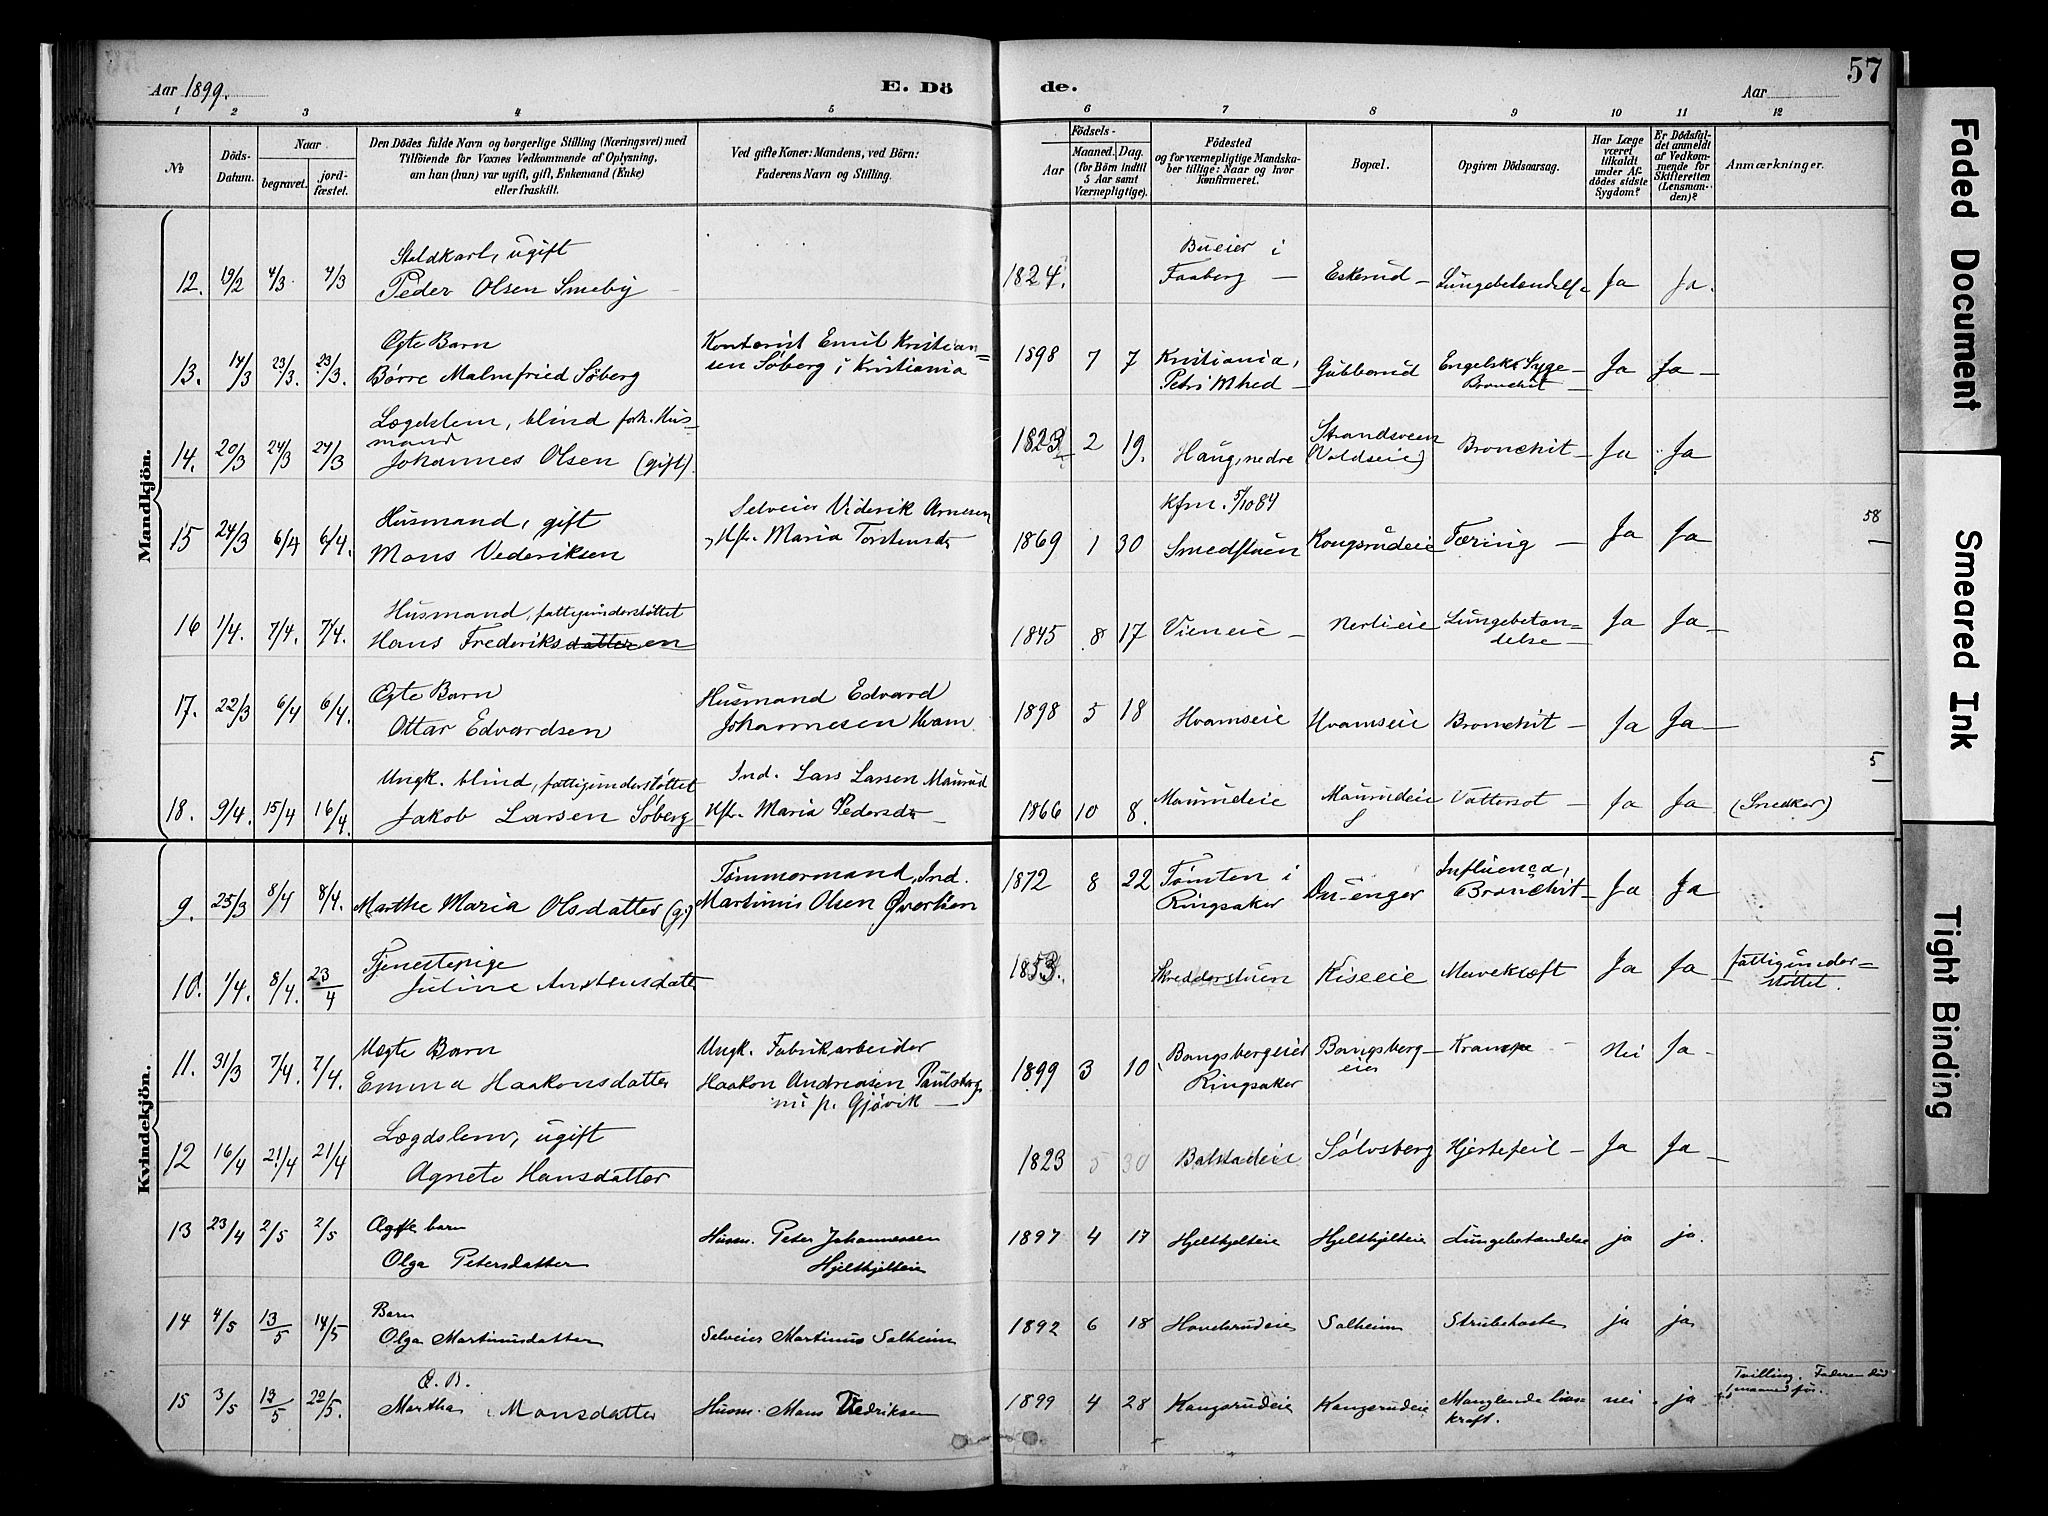 Aar 1899.
E. Dö
de.
Aar
57
1 2 3 4 5 6 7 8 9 10 11 12
No
Döds-Datum.
Naar
begravet.
jord-fæstet.
Den Dödes fulde Navn og borgerlige Stilling (Næringsvei) med
Tilföiende for Voxnes Vedkommende af Oplysning,
om han (hun) var ugift, gift, Enkemand (Enke)
eller fraskilt.
Ved gifte Koner: Mandens, ved Börn:
Faderens Navn og Stilling.
Födsels-
Aar
Maaned. Dag.
(for Börn indtil
5 Aar samt
Værnepligtige).
Födested
og for værnepligtige Mandska-
ber tillige: Naar og hvor
Konfirmeret.
Bopæl.
Opgiven Dödsaarsag.
Har Læge
været
tilkaldt
under Af-
dödes sidste
Sygdom?
Er Dödsfal-
det anmeldt
af Vedkom-
mende for
Skifteretten
(Lensman-
den)?
Anmærkninger.
Mandkjön.
12. 19/2 4/3 4/3 Staldkarl, ugift
Peder Olsen Smeby
1824. Bueier i
Faaberg — Eskerud — Lungebetændelse Ja Ja.
13. 14/3 23/3. 23/3. Ægte Barn
Børre Malmfried Söberg
Kontorist Emil Kristian=
sen Söberg i Kristiania
1898 7 7 Kristiania,
Petri Mhed — Gubberud Engelsk Syge —
Bronchit — Ja Ja —
14. 20/3 24/3 24/3 Lægdslem, blind forh. Hus-
mand
Johannes Olsen (gift).
1823 2 19. Haug, nedre Strandsveen
(Voldseie) Bronchit — Ja Ja
15 24/3 6/4 6/4. Husmand, gift
Mons Vederiksen
Selveier Viderik Arnesen
Hfr. Maria Torstensdr
1869 1 30 kfm. 5/10 84
Smedstuen Kongsrudeie Tæring — Ja Ja
58
16 1/4. 7/4. 7/4. Husmand, fattigunderstøttet
Hans Frederiksdatteren
1845 8 17 Vieneie — Nerlieie Lungebetæn=
delse — Ja Ja —
17. 22/3 6/4 6/4. Ægte Barn
Ottar Edvardsen
Husmand Edvard
Johannesen Kvam
1898 5 18 Hvamseie Hvamseie Bronchit — Ja Ja —
5
18. 9/4. 15/4 16/4. Ungk. blind, fattigunderstøttet
Jakob Larsen Söberg
Ind. Lars Larsen Maurud
Hfr. Maria Pedersdr —
1866 10 8. Maurudeie Maurudeie Vattersot — Ja Ja (Snedker)
Kvindekjön.
9. 25/3 8/4 8/4. Marthe Maria Olsdatter (g.)
Tømmermand, Ind.
Martinus Olsen Øverlien
1872 8 22 Tomten i
Ringsaker Du-enger Influença,
Bronchit — Ja Ja
10. 1/4. 8/4. 23/4 Tjenestepige
Juline Arnstensdatt
1853. Skredderstuen Kiseeie Mavekræft Ja Ja fattigunder=
støttet.
11. 31/3 7/4. 7/4. Uægte Barn
Emma Haakonsdatter
Ungk. Fabrikarbeider
Haakon Andreasen Paulsberg
nu p. Gjøvik —
1899 3 10 Bangsbergeier
Ringsaker Bangsberg —
eier Krampe — Nei Ja —
12 16/4 21/4 21/4 Lægdslem, ugift
Agnete Hansdatter
1823 5 30 Balstadeie Sølvsberg Hjertefeil — Ja Ja —
13 23/4 2/5 2/5 Ægte barn
Olga Petersdatter
Husm. Peter Johannessen
Hjelthjelteie
1897 4 17 Hjelthjelteie Hjelthjelteie Lungebetændelse ja ja.
14 4/5 13/5 14/5 Barn
Olga Martinusdatter
Selveier Martinus Solheim
1892 6 18 Hovelsrudeie Solheim Strubehoste ja ja
15 3/5 13/5 22/5. Æ. B.
Martha Monsdatter
Husm. Mons Vedriksen
1899 4 28 Kongsrudeie Kongsrudeie Manglende livs-
kraft. nei ja Tvilling. Faderen død
1 maaned før.
Faded Document
Smeared Ink
Tight Binding